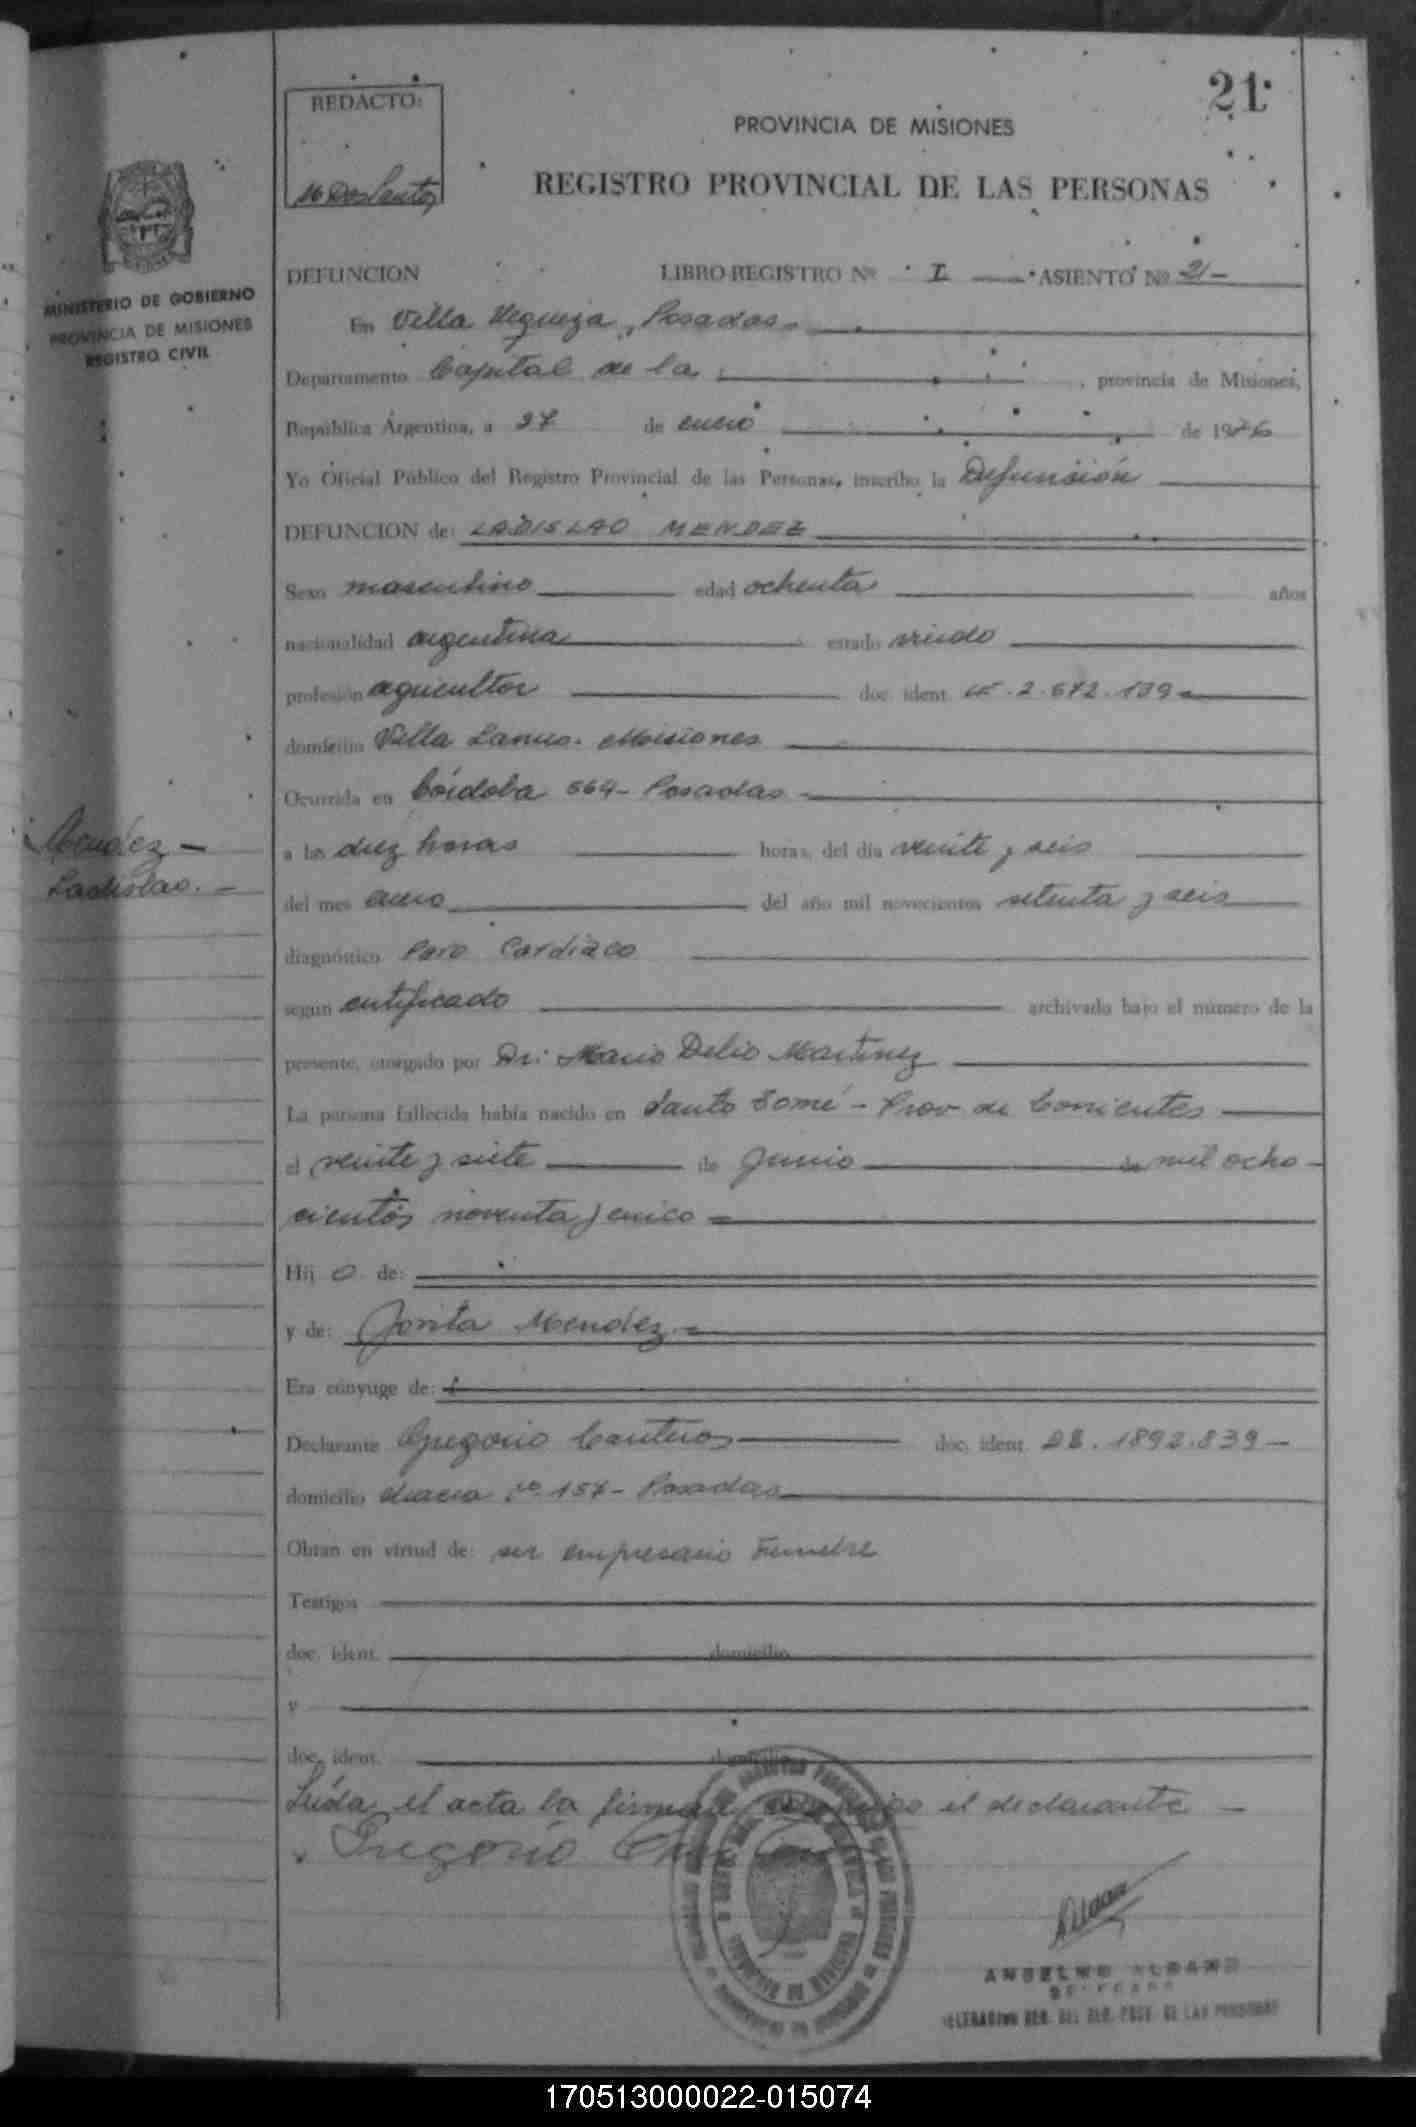 21
REDACTO:
M Dos Santos
PROVINCIA DE MISIONES
REGISTRO PROVINCIAL DE LAS PERSONAS
MINISTERIO DE GOBIERNO
PROVINCIA DE MISIONES
REGISTRO CIVIL
DEFUNCION LIBRO REGISTRO Nº I ASIENTO Nº 21-
En Villa Urquiza, Posadas.-
Departamento Capital de la , provincia de Misiones,
República Argentina, a 27 de enero de 1976
Yo Oficial Público del Registro Provincial de las Personas, inscribo la Defunción
DEFUNCION de: LADISLAO MENDEZ
Sexo masculino edad ochenta años
nacionalidad argentina estado viudo
profesión agricultor doc. ident. LE. 2.672.139-
domicilio Villa Lanus. Misiones
Ocurrida en Córdoba 564- Posadas-
Mendez-
Ladislao.-
a las diez horas horas, del día veinte y seis
del mes enero del año mil novecientos setenta y seis
diagnóstico Paro Cardiaco
según certificado archivado bajo el número de la
presente, otorgado por Dr: Mario Delio Martinez
La persona fallecida había nacido en Santo Tomé - Prov. de Corrientes
el veinte y siete de Junio de mil ocho-
cientos noventa y cinco =
Hij o de:
y de: Jovita Mendez.=
Era cónyuge de:
Declarante Gregorio Canteros doc. ident. DI. 1892.839-
domicilio chacra Nº 157- Posadas
Obran en virtud de: ser empresario Funebre
Testigos
doc. ident. domicilio
y
doc. ident. domicilio
Leída el acta la firma el declarante -
Gregorio
ANSELMO ALBANO
DELEGADO
DELEGACION REG. DEL REG. PROV. DE LAS PERSONAS
170513000022-015074